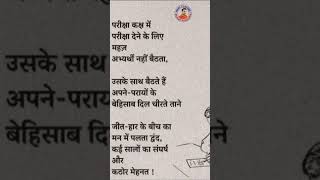 परीक्षा कक्ष में
परीक्षा देने के लिए
महज़
अभ्यर्थी नहीं बैठता,
उसके साथ बैठते हैं
अपने-परायों के
बेहिसाब दिल चीरते ताने
जीत-हार के बीच का
मन में पलता द्वंद,
कई सालों का संघर्ष
और
कठोर मेहनत !